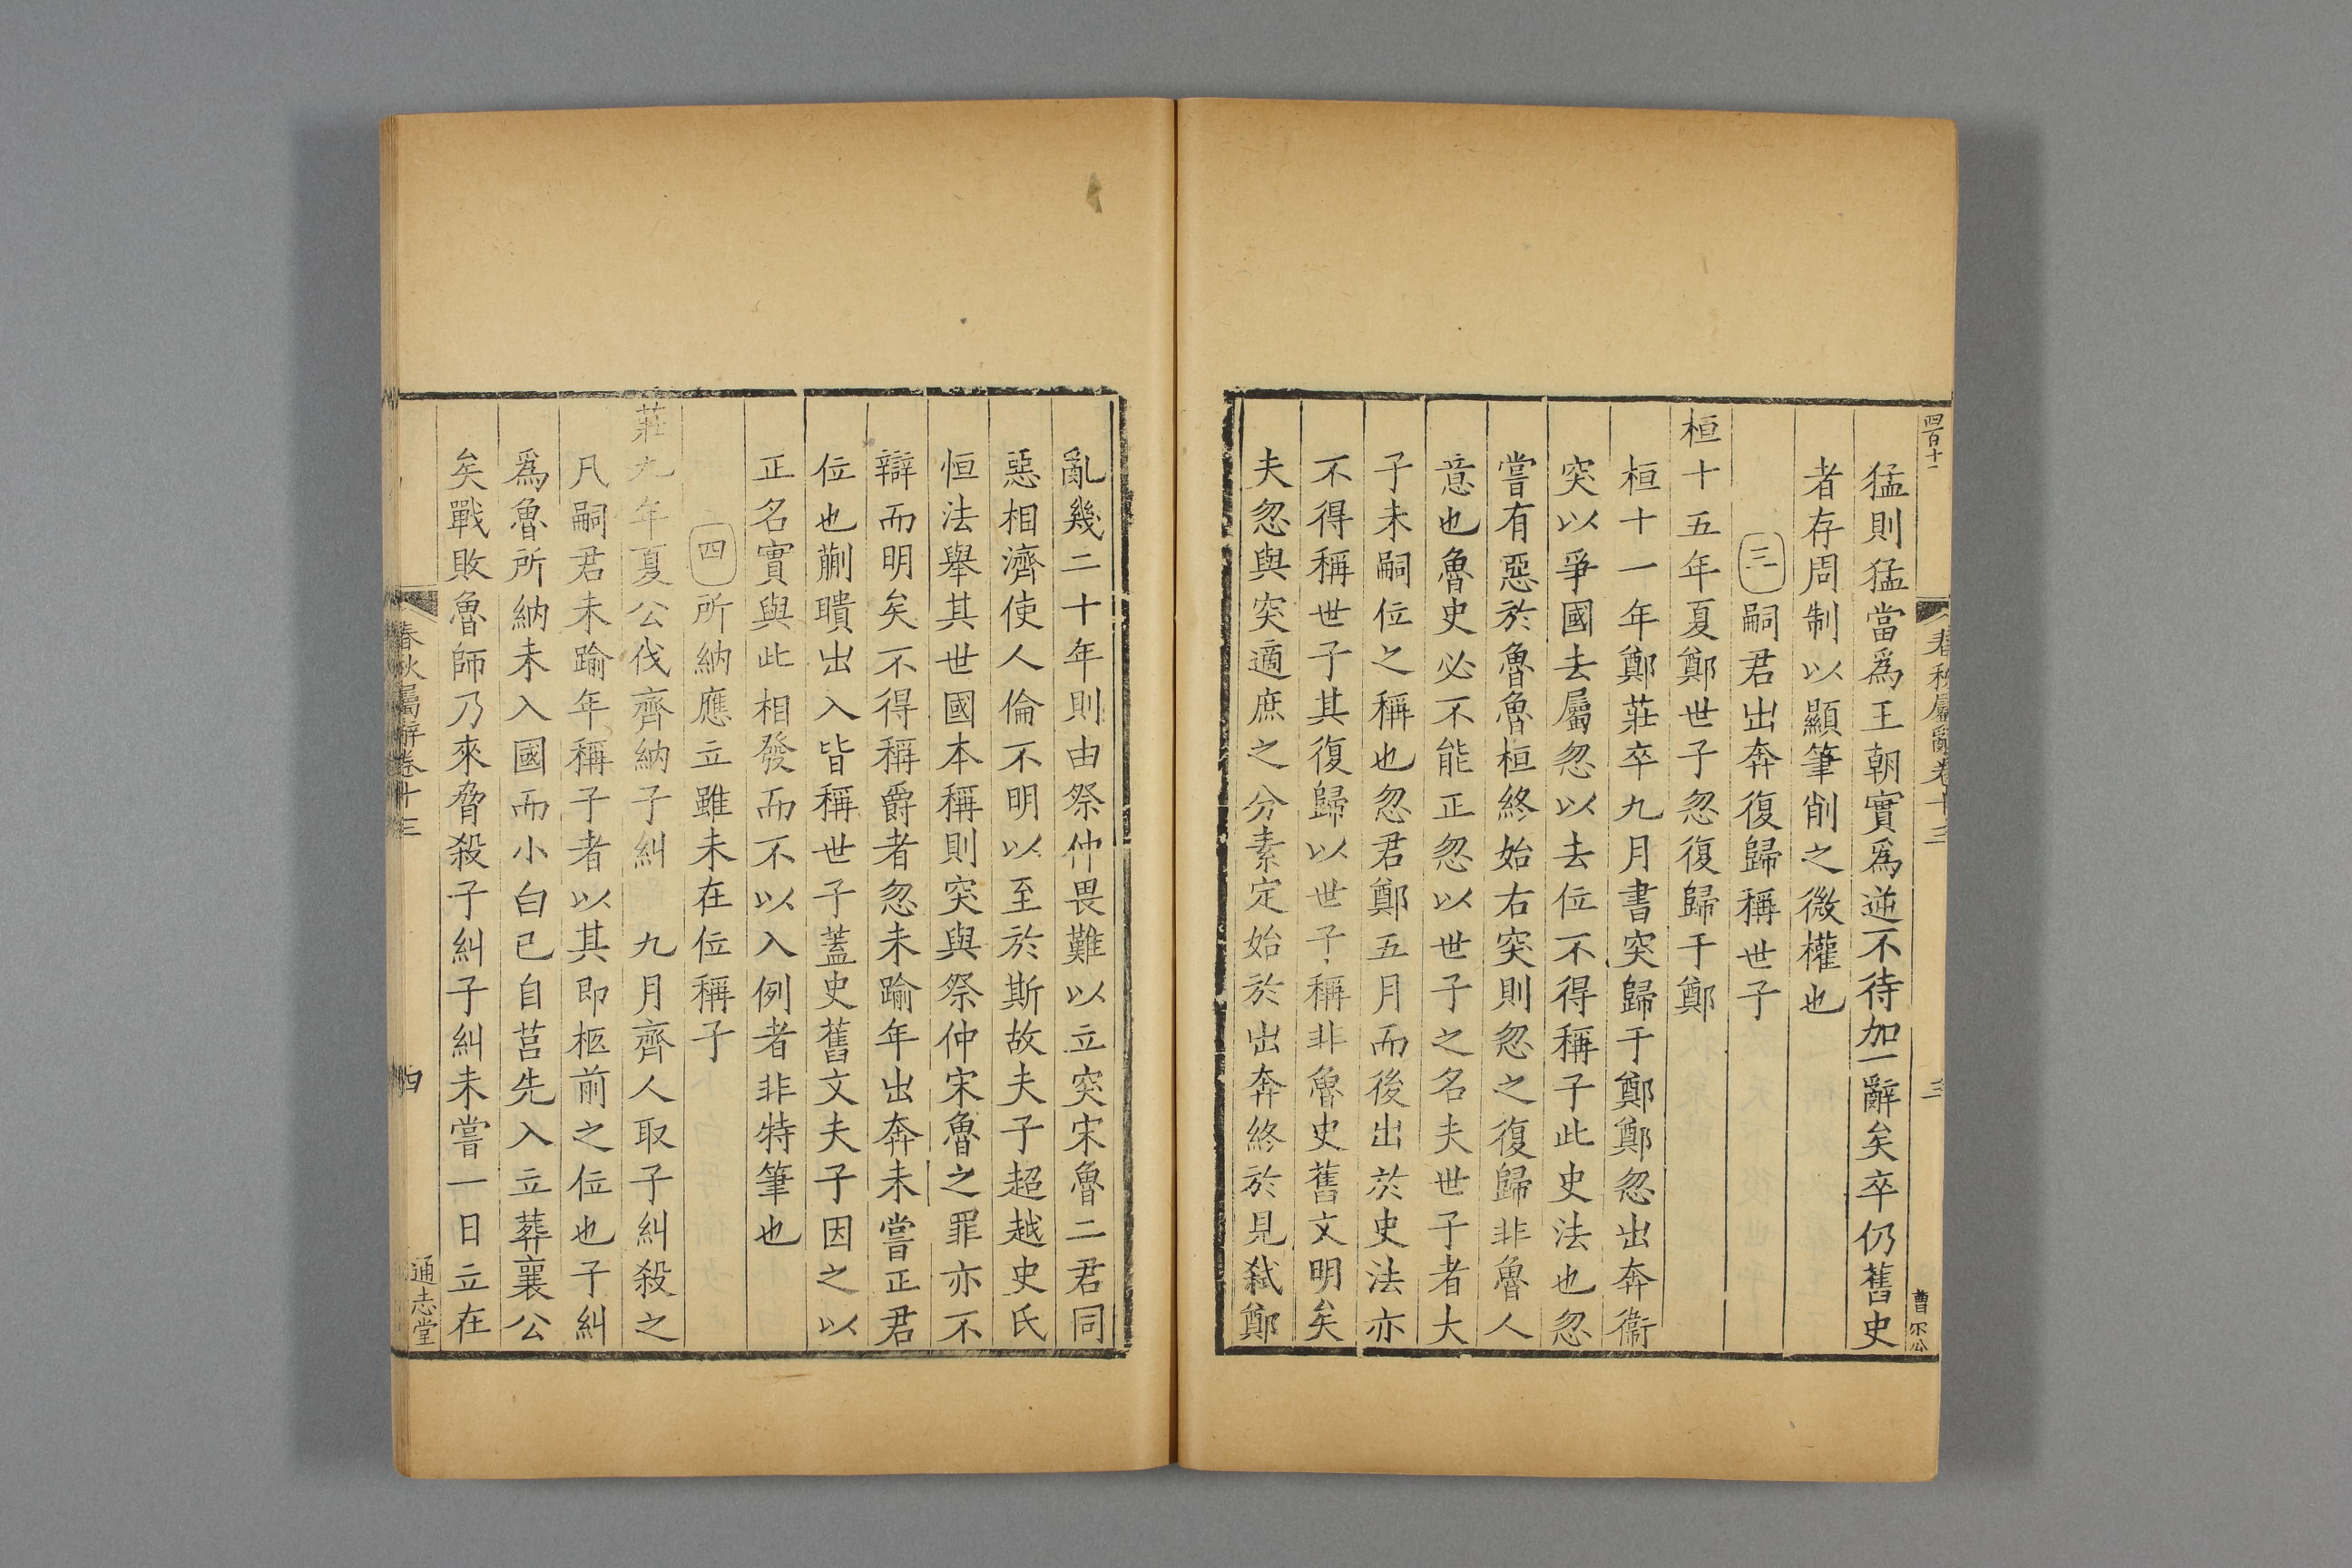 四百十一
春秋屬辭卷十三
三
曹尔公
猛則猛當爲王朝實爲逆不待加一辭矣卒仍舊史
者存周制以顯筆削之微權也
三嗣君出奔復歸稱世子
桓十五年夏鄭世子忽復歸于鄭
桓十一年鄭莊卒九月書突歸于鄭鄭忽出奔衞
突以爭國去屬忽以去位不得稱子此史法也忽
嘗有惡於魯魯桓終始右突則忽之復歸非魯人
意也魯史必不能正忽以世子之名夫世子者大
子未嗣位之稱也忽君鄭五月而後出於史法亦
不得稱世子其復歸以世子稱非魯史舊文明矣
夫忽與突適庶之分素定始於出奔終於見弒鄭
亂幾二十年則由祭仲畏難以立突宋魯二君同
惡相濟使人倫不明以至於斯故夫子超越史氏
恒法舉其世國本稱則突與祭仲宋魯之罪亦不
辯而明矣不得稱爵者忽未踰年出奔未嘗正君
位也蒯聵出入皆稱世子蓋史舊文夫子因之以
正名實與此相發而不以入例者非特筆也
四所納應立雖未在位稱子
莊九年夏公伐齊納子糾 九月齊人取子糾殺之
凡嗣君未踰年稱子者以其即柩前之位也子糾
爲魯所納未入國而小白已自莒先入立葬襄公
矣戰敗魯師乃來脅殺子糾子糾未嘗一日立在
春秋屬辭卷十三
四
通志堂